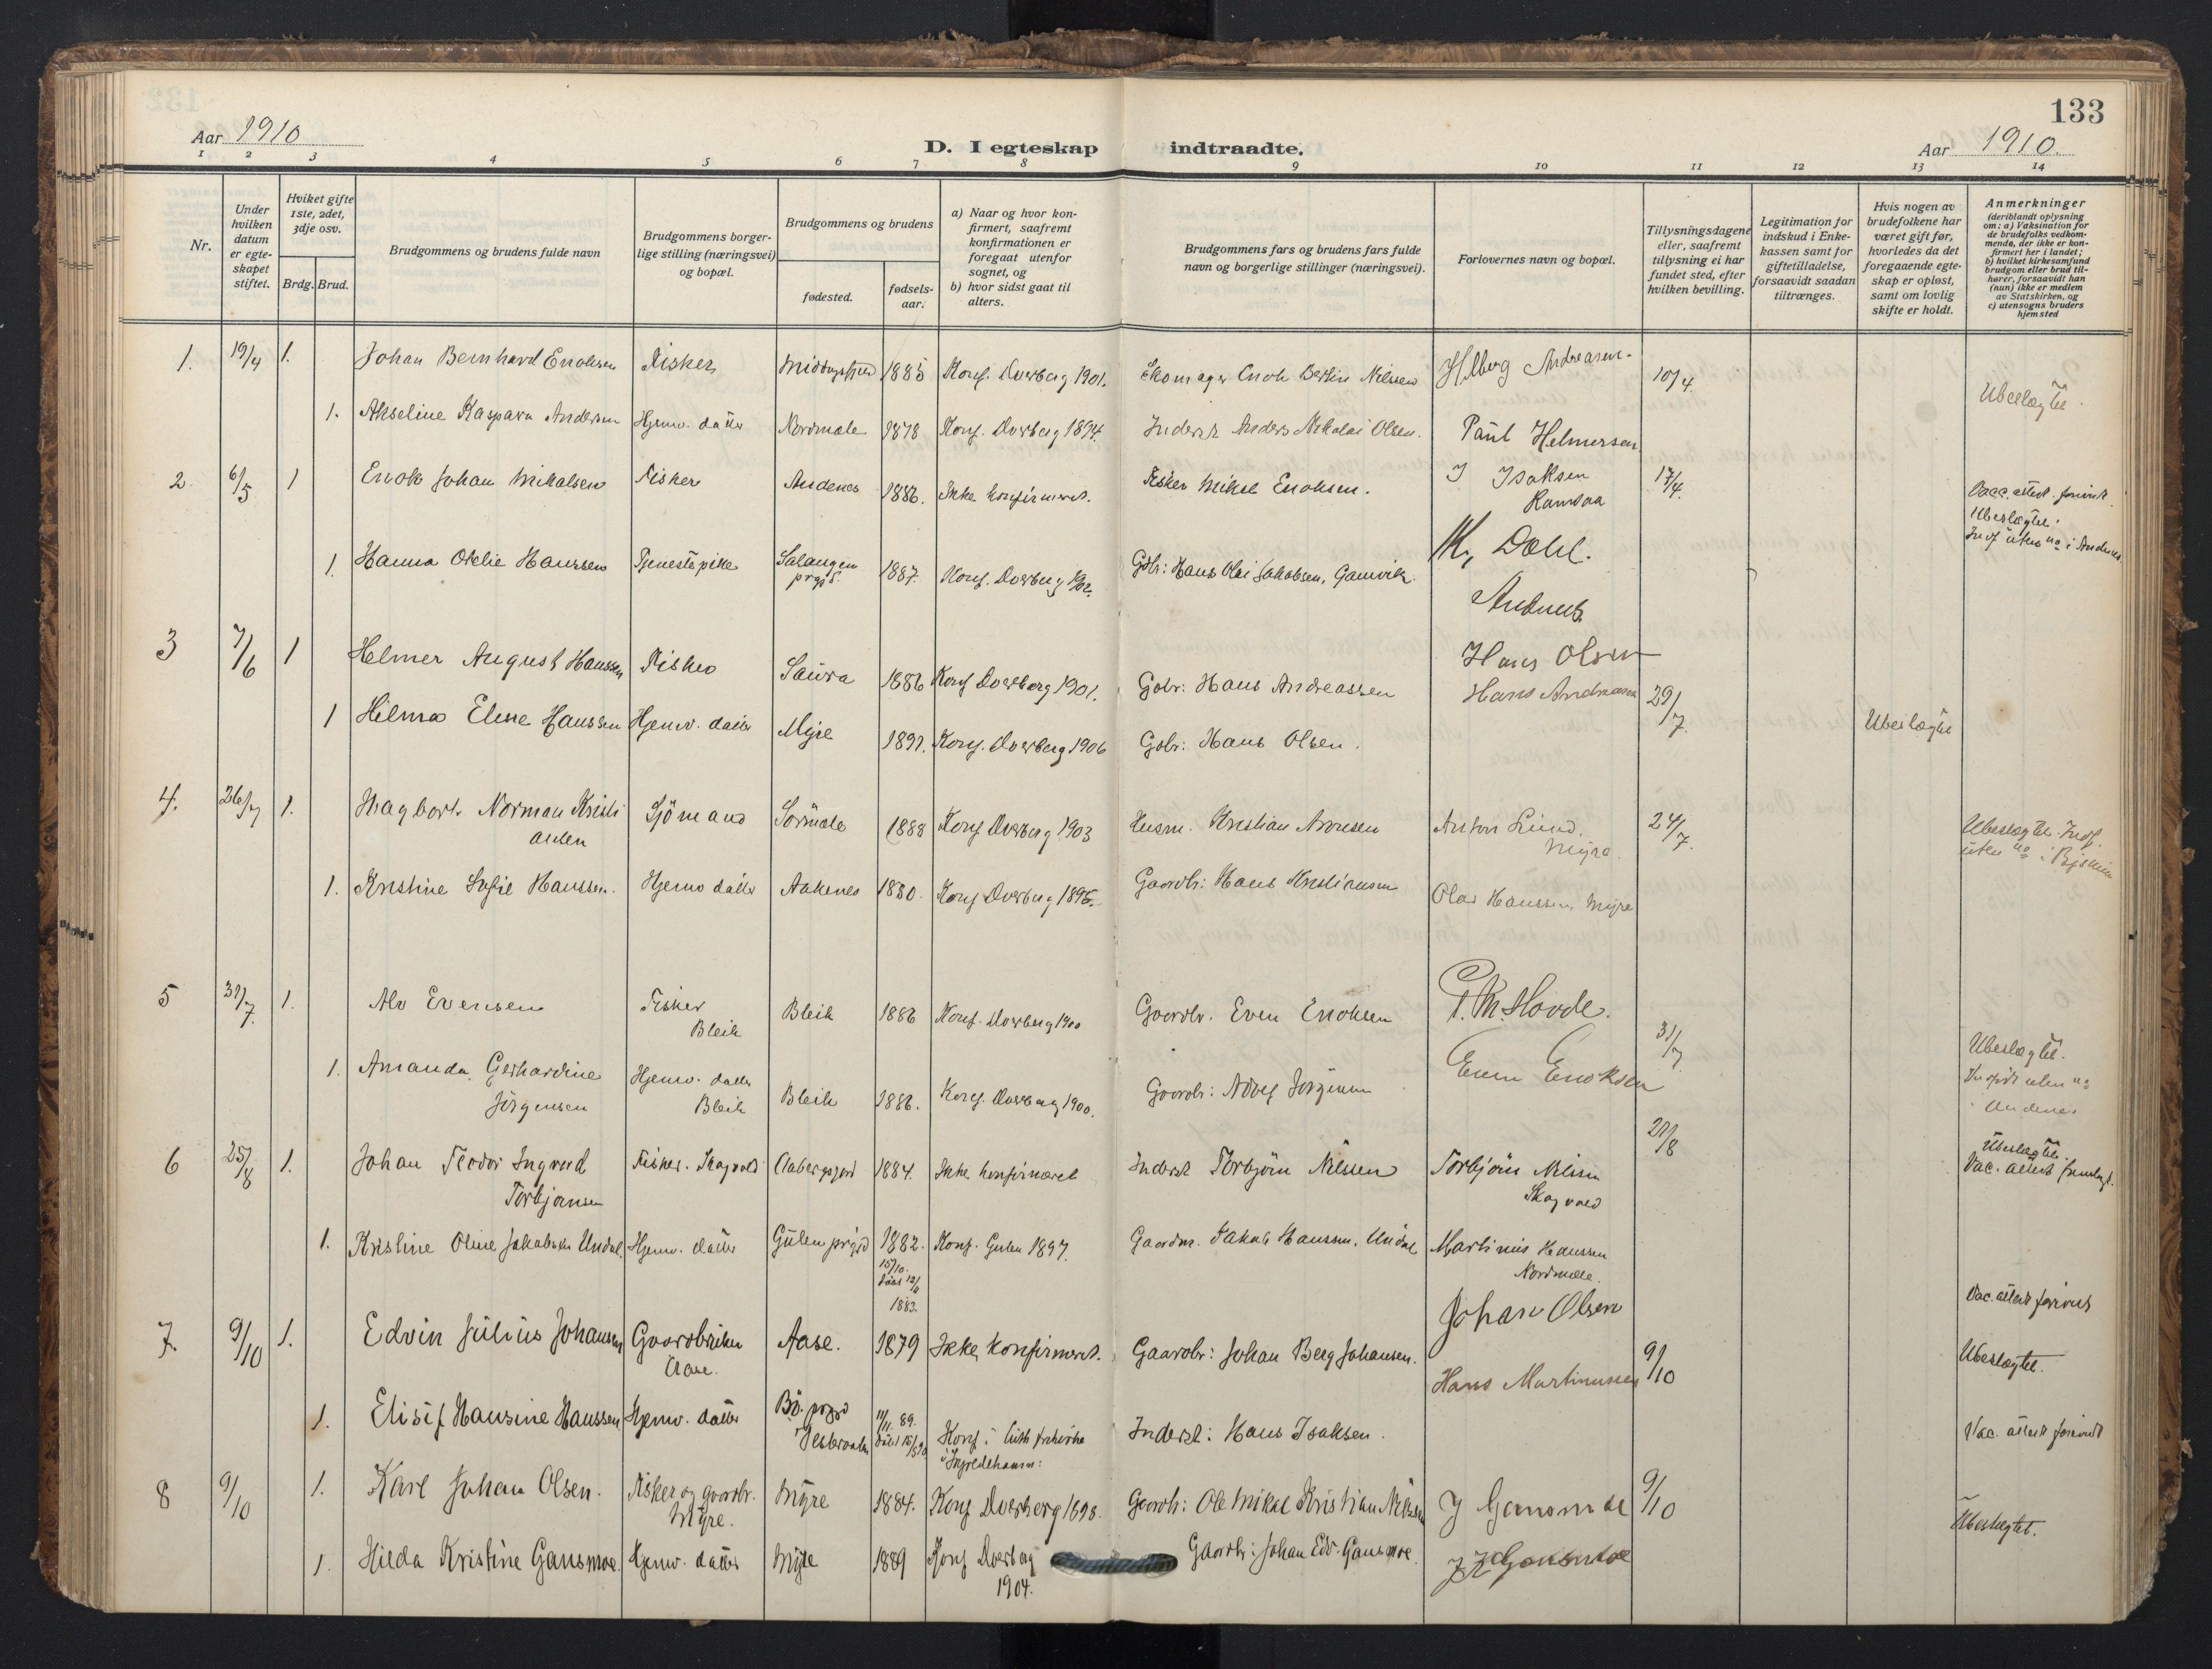 133
Aar 1910
D. I egteskap indtraadte.
Aar 1910.
1 2 3 4 5 6 7 8 9 10 11 12 13 14
Nr.
Under hvilken datum er egte-skapet stiftet.
Hviket gifte 1ste, 2det, 3dje osv.
Brdg. Brud.
Brudgommens og brudens fulde navn
Brudgommens borger-lige stilling (næringsvei) og bopæl.
Brudgommens og brudens
fødested.
fødsels-aar.
a) Naar og hvor kon-firmert, saafremt konfirmationen er foregaat utenfor sognet, og
b) hvor sidst gaat til alters.
Brudgommens fars og brudens fars fulde navn og borgerlige stillinger (næringsvei).
Forlovernes navn og bopæl.
Tillysningsdagene eller, saafremt tillysning ei har fundet sted, efter hvilken bevilling.
Legitimation for indskud i Enke-kassen samt for giftetilladelse, forsaavidt saadan tiltrænges.
Hvis nogen av brudefolkene har været gift før, hvorledes da det foregaaende egte-skap er opløst, samt om lovlig skifte er holdt.
Anmerkninger (deriblandt oplysning om: a) Vaksination for de brudefolks vedkom-mende, der ikke er kon-firmert her i landet; b) hvilket kirkesamfund brudgom eller brud til-hører, forsaavidt han (hun) ikke er medlem av Statskirken, og c) utensogns bruders hjemsted
1. 19/4 1. Johan Bernhard Enoksen Fisker 1885 Konf. Dverberg 1901. Enok Bertin Nilssen Hilberg Andreasen 10/4. Ubeslægtet.
1. Akseline Kaspara Andersen Hjemv. datter Nordmele 1878 Konf. Dverberg 1894. Inderst Anders Nikolai Olsen. Paul Helmersen
2. 6/5 1 Enok Johan Mikalsen Fisker Andenes 1886. Ikke konfirmeret. Fisker Mikal Enoksen. J Isaksen Ramsaa 17/4. Vacc. attest forevist Ubeslægtet. Indf uten no i Andenes
1. Hanna Otelie Hanssen Tjenestepike Salangen prgjd. 1887. Konf. Dverberg 1902. Gbr: Hans Olai Jakobsen, Gamvik. M. Dahl. Andenes
3 7/6 1 Helmer August Hanssen Fisker Saura 1886 Konf Dverberg 1901. Gbr: Hans Andreassen Hans Olsen
Hans Andreasen 29/7.
1 Hilma Eline Hanssen Hjemv. datter Myre 1891. Konf. Dverberg 1906 Gbr: Hans Olsen. Ubeslægtet
4. 26/7 1. Hagbart Norman Kristiansen Sjømand Sørmele 1888 Konf Dverberg 1903 Husm. Kristian Arntsen Anton Lund. Myre. 24/7. Ubeslægtet. Indf. uten no i
1. Kristine Sofie Hanssen. Hjemv datter Aakenes 1880. Konf Dverberg 1895. Gaardbr: Hans Kristiansen Olai Hanssen Myre
5 31/7. 1. Alv Evensen Fisker Bleik Bleik 1886 Konf. Dverberg 1900 Gaardbr. Even Enoksen P. M. Hovde. 31/7
1. Amanda Gerhardine Jörgensen Hjemv. datter Bleik Bleik 1886. Konf. Dverberg 1900. Gaardbr: Adolf Jörgensen Even Enoksen Ubeslægtet. Indført uten no i Andenes
6 25/8 1. Johan Teodor Ingvard Torbjørnsen Fisker. Skogvold Aabergsjord 1884. Ikke konfirmeret Inderst Torbjørn Nilssen Torbjørn Nilsen Skogvold 21/8 Ubeslægtet. Vac. attest fremlagt.
1. Kristine Oline Jakobsen Undal. Hjemv. datter Gulen prgjd 1882. 15/10. døbt 12/4 1883. Konf. Gulen 1897. Gaardm. Jakob Hanssen, Undal Martinus Hanssen Nordmele.
Vac. attest forevist
7. 9/10 1. Edvin Julius Johansen Gaardbruker Aase. Aase. 1879 Ikke konfirmeret. Gaardbr: Johan Berg Johansen. Johan Olsen
Hans Martinussen 9/10 Ubeslægtet.
1. Elisif Hansine Hanssen Hjemv. datter Bø. prgjd Vesteraalen 11/11. 89. døbt 15/5 90 Konf. i luth frikirke i Inderst: Hans Isaksen. Vac. attest forevist
8 9/10 1. Karl Johan Olsen. Fisker og gaardbr. Myre. Myre 1884. Konf Dverberg 1898. Gaardbr: Ole Mikal Kristian Nilssen J Gansmoe 9/10 Ubeslægtet.
1. Hilda Kristine Gansmoe. Hjemv. datter Myre 1889 Konf Dverberg 1904. Gaardbr: Johan Edv. Gansmoe. J K Gansmoe